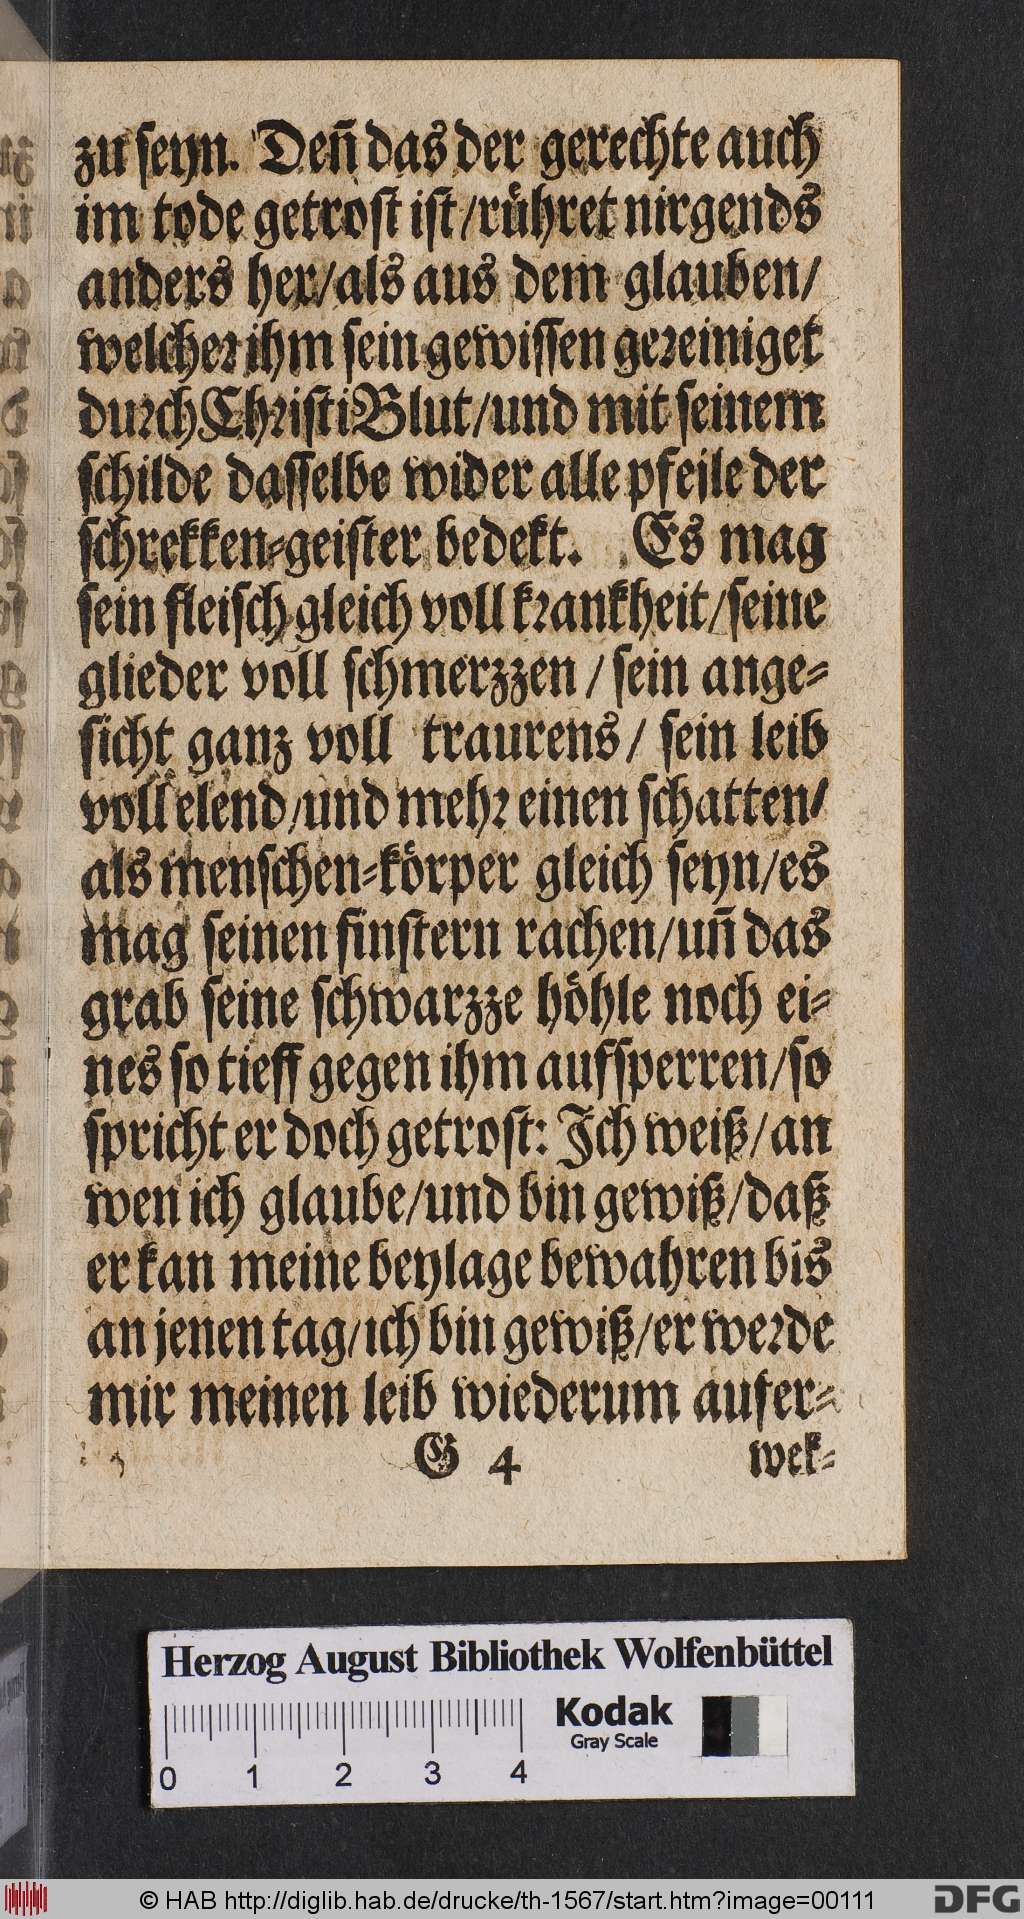 zu ſeyn. Deñ das der gerechte auch
im tode getroſt iſt/rühret nirgends
anders her/als aus dem glauben/
welcher ihm ſein gewiſſen gereiniget
durch Chriſti Blut/und mit ſeinem
ſchilde daſſelbe wider alle pfeile der
ſchrekken-geiſter bedekt. Es mag
ſein fleiſch gleich voll krankheit/ſeine
glieder voll ſchmerzzen/ſein ange-
ſicht ganz voll traurens/ ſein leib
voll elend/und mehr einen ſchatten/
als menſchen-körper gleich ſeyn/es
mag ſeinen finſtern rachen/uñ das
grab ſeine ſchwarzze höhle noch ei-
nes ſo tieff gegen ihm aufſperren/ſo
ſpricht er doch getroſt: Ich weiß/an
wen ich glaube/und bin gewiß/daß
er kan meine beylage bewahren bis
an jenen tag/ich bin gewiß/er werde
mir meinen leib wiederum aufer-
G 4 wek-
Herzog August Bibliothek Wolfenbüttel
Kodak
Gray Scale
0 1 2 3 4
© HAB http://diglib.hab.de/drucke/th-1567/start.htm?image=00111
DFG